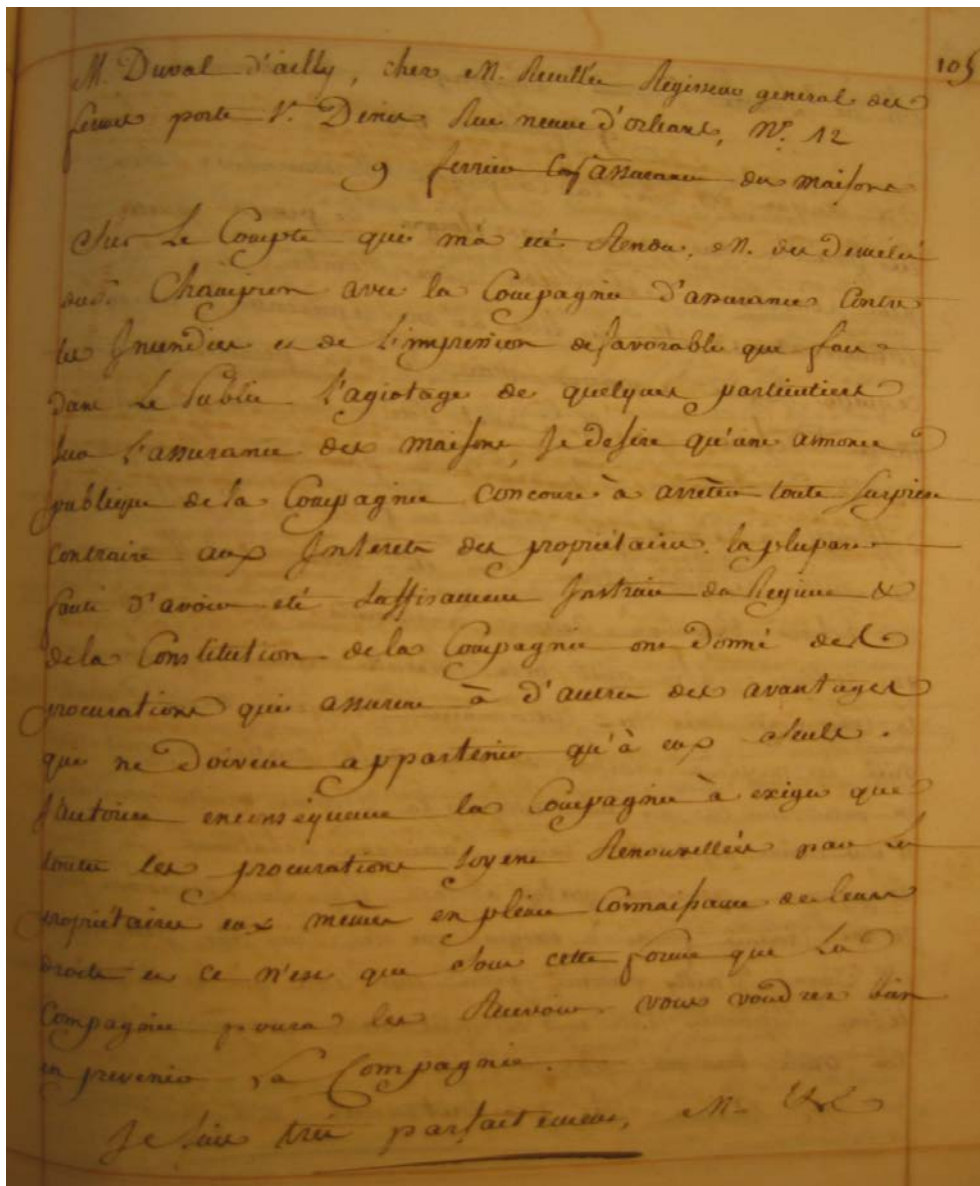 105
M. Duval d'ailly, chez M. Regisseur general des
fermes porte St. Denis Rue neuve d'orleans, N° 12
9 fevrier assurance des maisons
Sur le Compte qui m'a eté Rendu, M. du Demelé
du Sr. Champion avec la Compagnie d'assurance Contre
les Incendies et de L'impression defavorable que fait
dans Le Public l'agiotage de quelques particuliers
sur L'assurance des maisons, Je desire qu'une annonce
publique de la Compagnie concoure à arrêter toute surprise
contraire aux Interets des propriétaires. la plupart
faute d'avoir eté suffisament Instruits du Regime &
de la Constitution de la Compagnie ont donné des
procurations qui assurent à d'autres des avantages
qui ne doivent appartenir qu'à eux seuls.
J'autorise en conséquence la Compagnie à exiger que
toutes les procurations soyent Renouvellées par les
propriétaires eux mêmes en pleine Connaissance de leurs
droits et ce n'est que sous cette forme que La
Compagnie poura les Recevoir. vous voudrez bien
en prevenir La Compagnie.
Je suis très parfaitement, M.